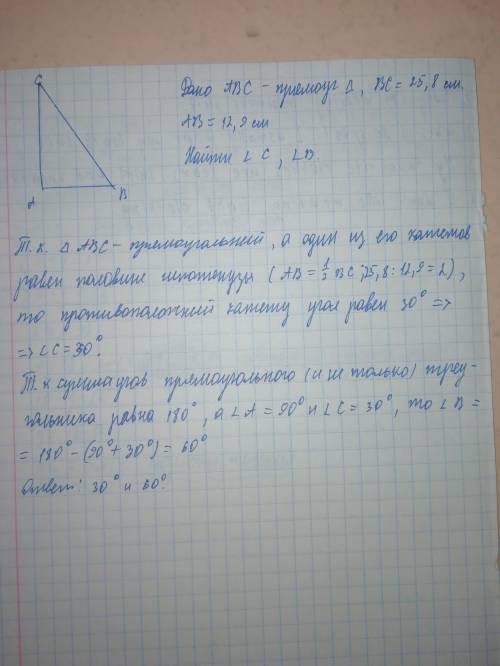 C
A
B
Дано ABC - прямоуг Δ, BC = 25,8 см.
AB = 12,9 см
Найти ∠C, ∠B.
Т.к. Δ ABC - прямоугольный, а один из его катетов
равен половине гипотенузы (AB = 1/2 BC; 25,8 : 12,9 = 2),
то противоположный катету угол равен 30° =>
=> ∠C = 30°.
Т.к сумма угов прямоугольного (и не только) треу-
гольника равна 180°, а ∠A = 90° и ∠C = 30°, то ∠B =
= 180° - (90° + 30°) = 60°
Ответ: 30° и 60°.